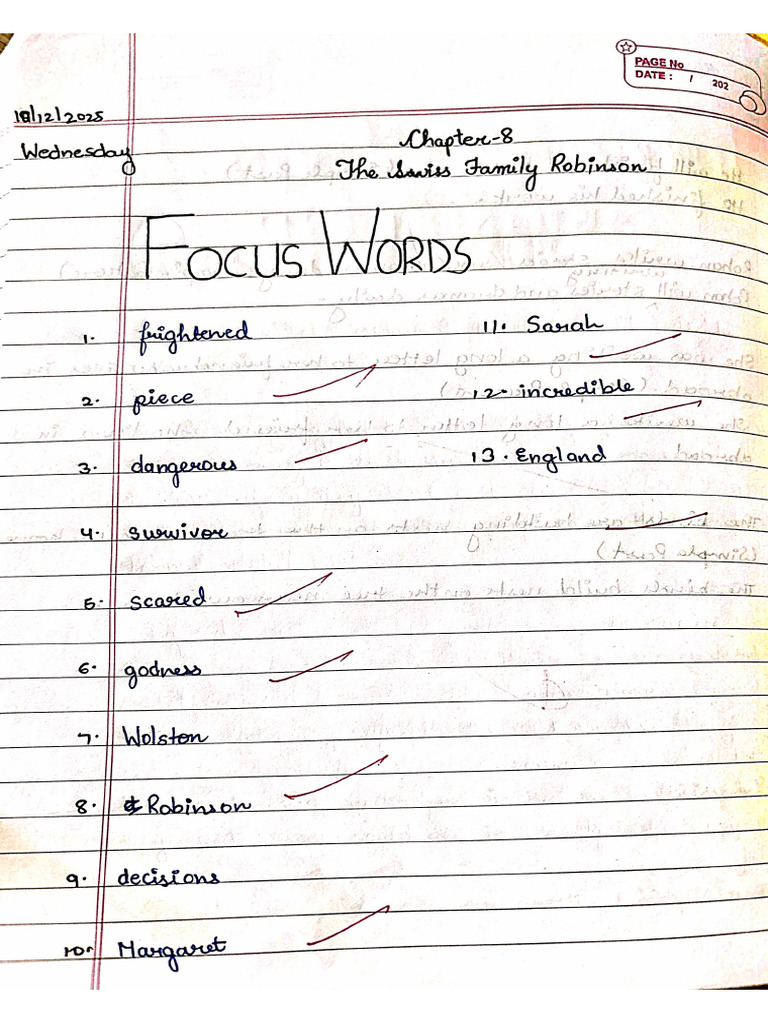 PAGE No
DATE : / 202
18/12/2025
Wednesday
Chapter-8
The Swiss Family Robinson
FOCUS WORDS
1. frightened
2. piece
3. dangerous
4. survivor
5. scared
6. godness
7. Wolston
8. Robinson
9. decisions
10. Margaret
11. Sarah
12. incredible
13. England